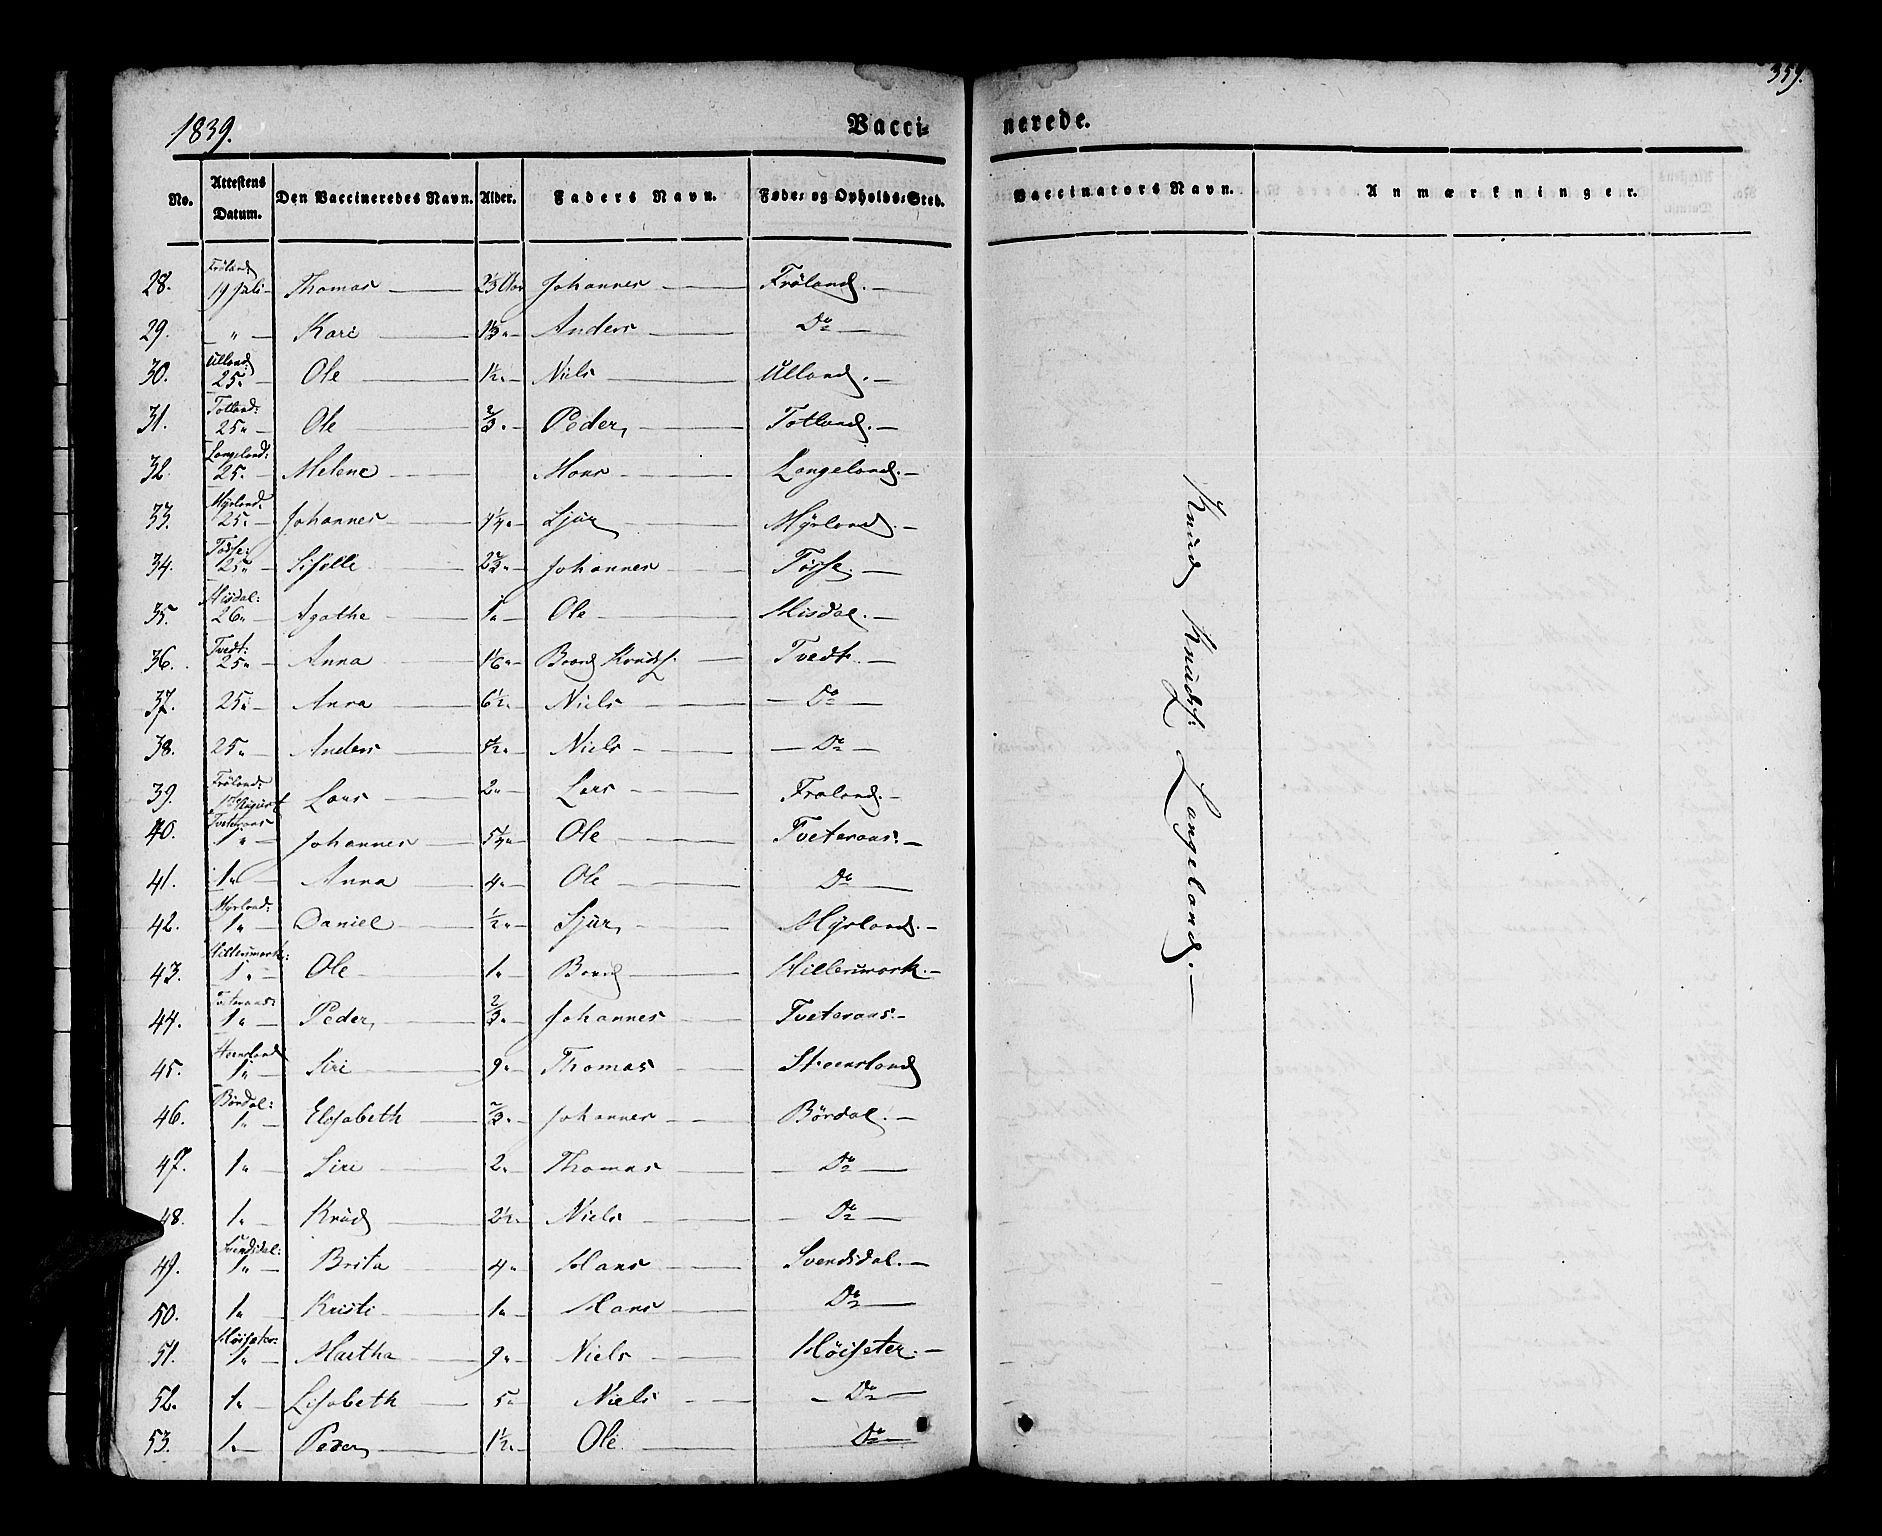 1839.
Vacci-
nerede.
359.
No. Attestens Datum. Den Vaccineredes Navn. Alder. Faders Navn. Føde- og Opholds-Sted. Vaccinators Navn. Anmærkninger.
28. Fröland 19 Juli Thomas Johannes Fröland.
29. " Kari Anders Do
30. Ulland 25 " Ole 1½ " Niels Ulland.
31. Totland: 25 " Ole ⅔ " Peder Totland.
32. Langeland: 25 " Helene Mons Langeland.
33. Myrland: 25 " Johannes Sjur Myrland.
34. Tösse: 25 " Johannes Tösse.
35. Misdal: 26 " Agathe 1 " Ole Misdal.
36. Tvedt: 25 " Anna 1⅙ " Baard Knuds. Tvedt.
37. 25 " Anna 6½ " Niels Do
38. 25 " Anders Niels Do
39. Fröland: 1ste August Lars 2 " Lars Fröland.
40. Tveteraas 1 " Johannes Ole Tveteraas.
41. 1 " Anna 4 " Ole Do
42. Myrland: 1 " Daniel ½ " Sjur Myrland.
43. 1 " Ole 1 " Baard
44. Tveteraas: 1 " Peder ⅔ " Johannes Tveteraas.
45. 1 " Siri 9 " Thomas
46. Bördal: 1 " Elisabeth ⅔ " Johannes Bördal.
47. 1 " Siri 2 " Thomas Do
48. 1 " Knud 2½ " Niels Do
49. Svendsdal: 1 " Brita 4 " Hans Svendsdal.
50. 1 " Kristi 1 " Hans Do
51. Höiseter: 1 " Martha 9 " Niels Höiseter.
52. 1 " Lisabeth 5 " Niels Do
53. 1 " Peder 1½ " Ole Do
Knud Knuds: Langeland.